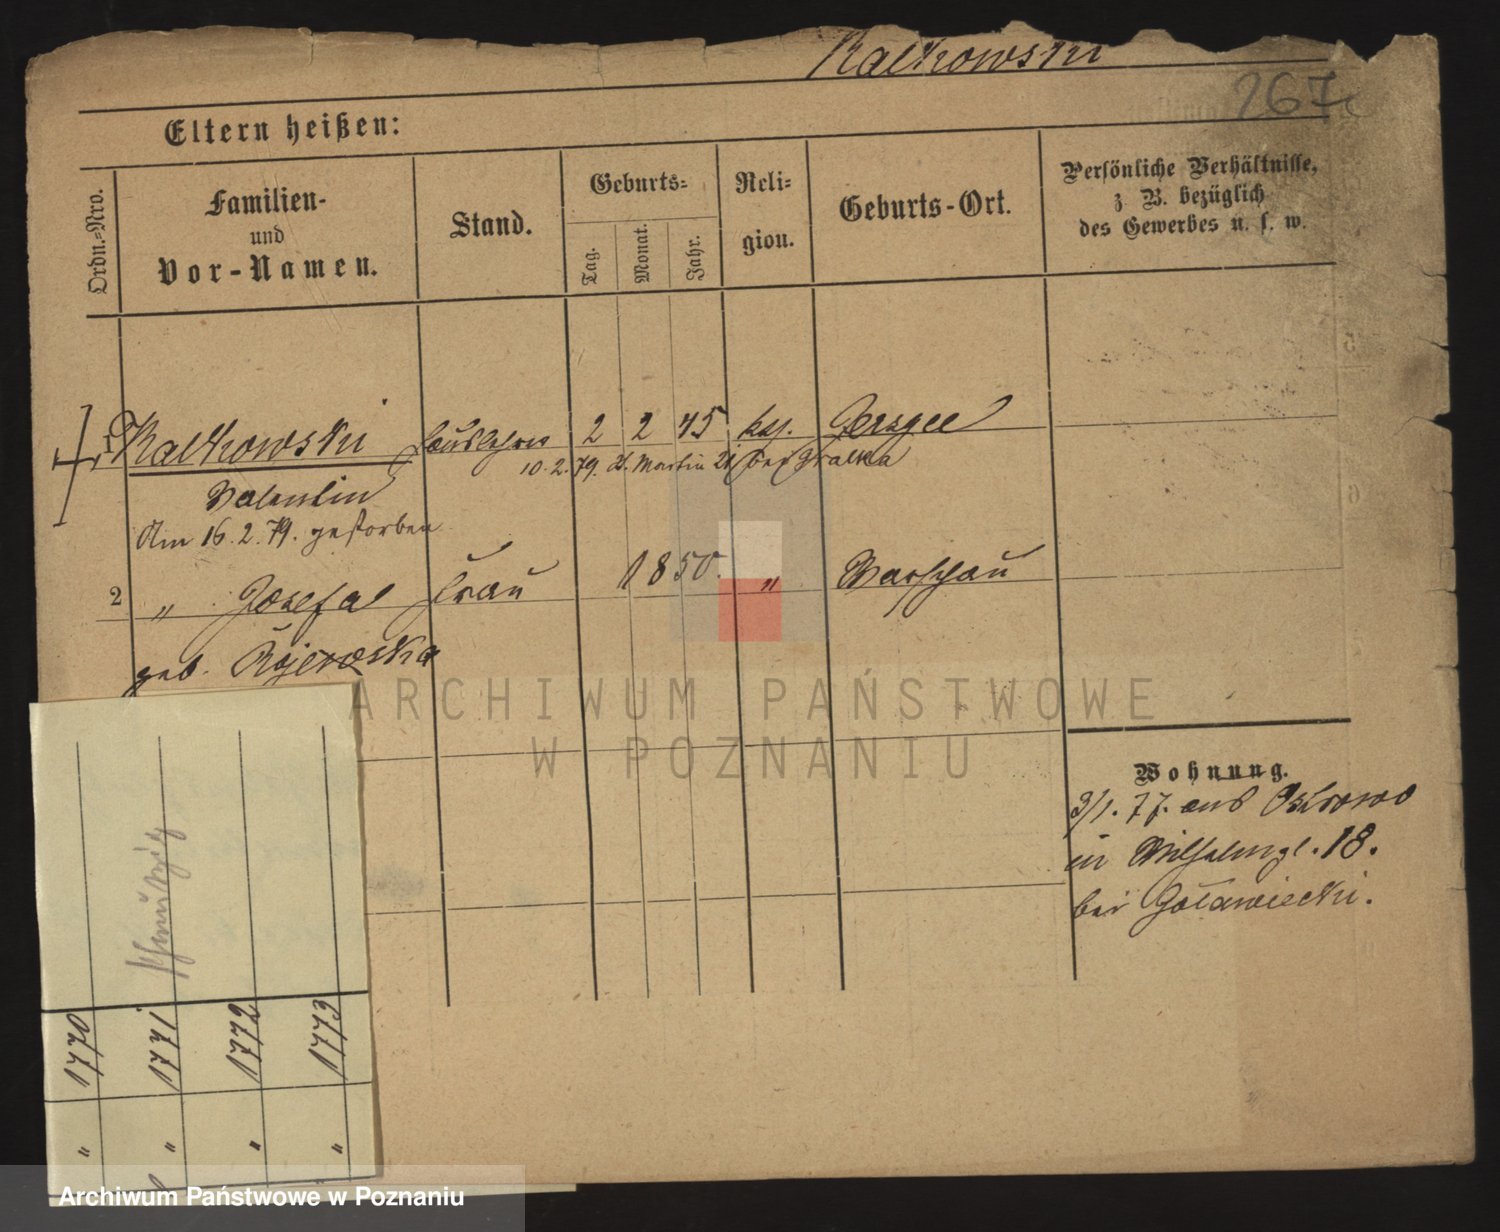 Ratkowski
267
Eltern heißen:
Ordn.-Nro.
Familien-
und
Vor-Namen.
Stand.
Geburts-
Tag.
Monat.
Jahr.
Reli-
gion.
Geburts-Ort.
Persönliche Verhältnisse,
z. B. bezüglich
des Gewerbes u. s. w.
Ratkowski 2 2 45
10. 2. 79. St. Martin
Valentin
Am 16. 2. 79. gestorben
2 " Josefa Frau 1850. " Warschau
geb. Rojewska
ARCHIWUM PAŃSTWOWE
W POZNANIU
Wohnung.
3/1. 77. aus Ostrowo
in Wilhelmpl. 18.
bei
1770 "
1771 "
1772 "
1773 "
Archiwum Państwowe w Poznaniu